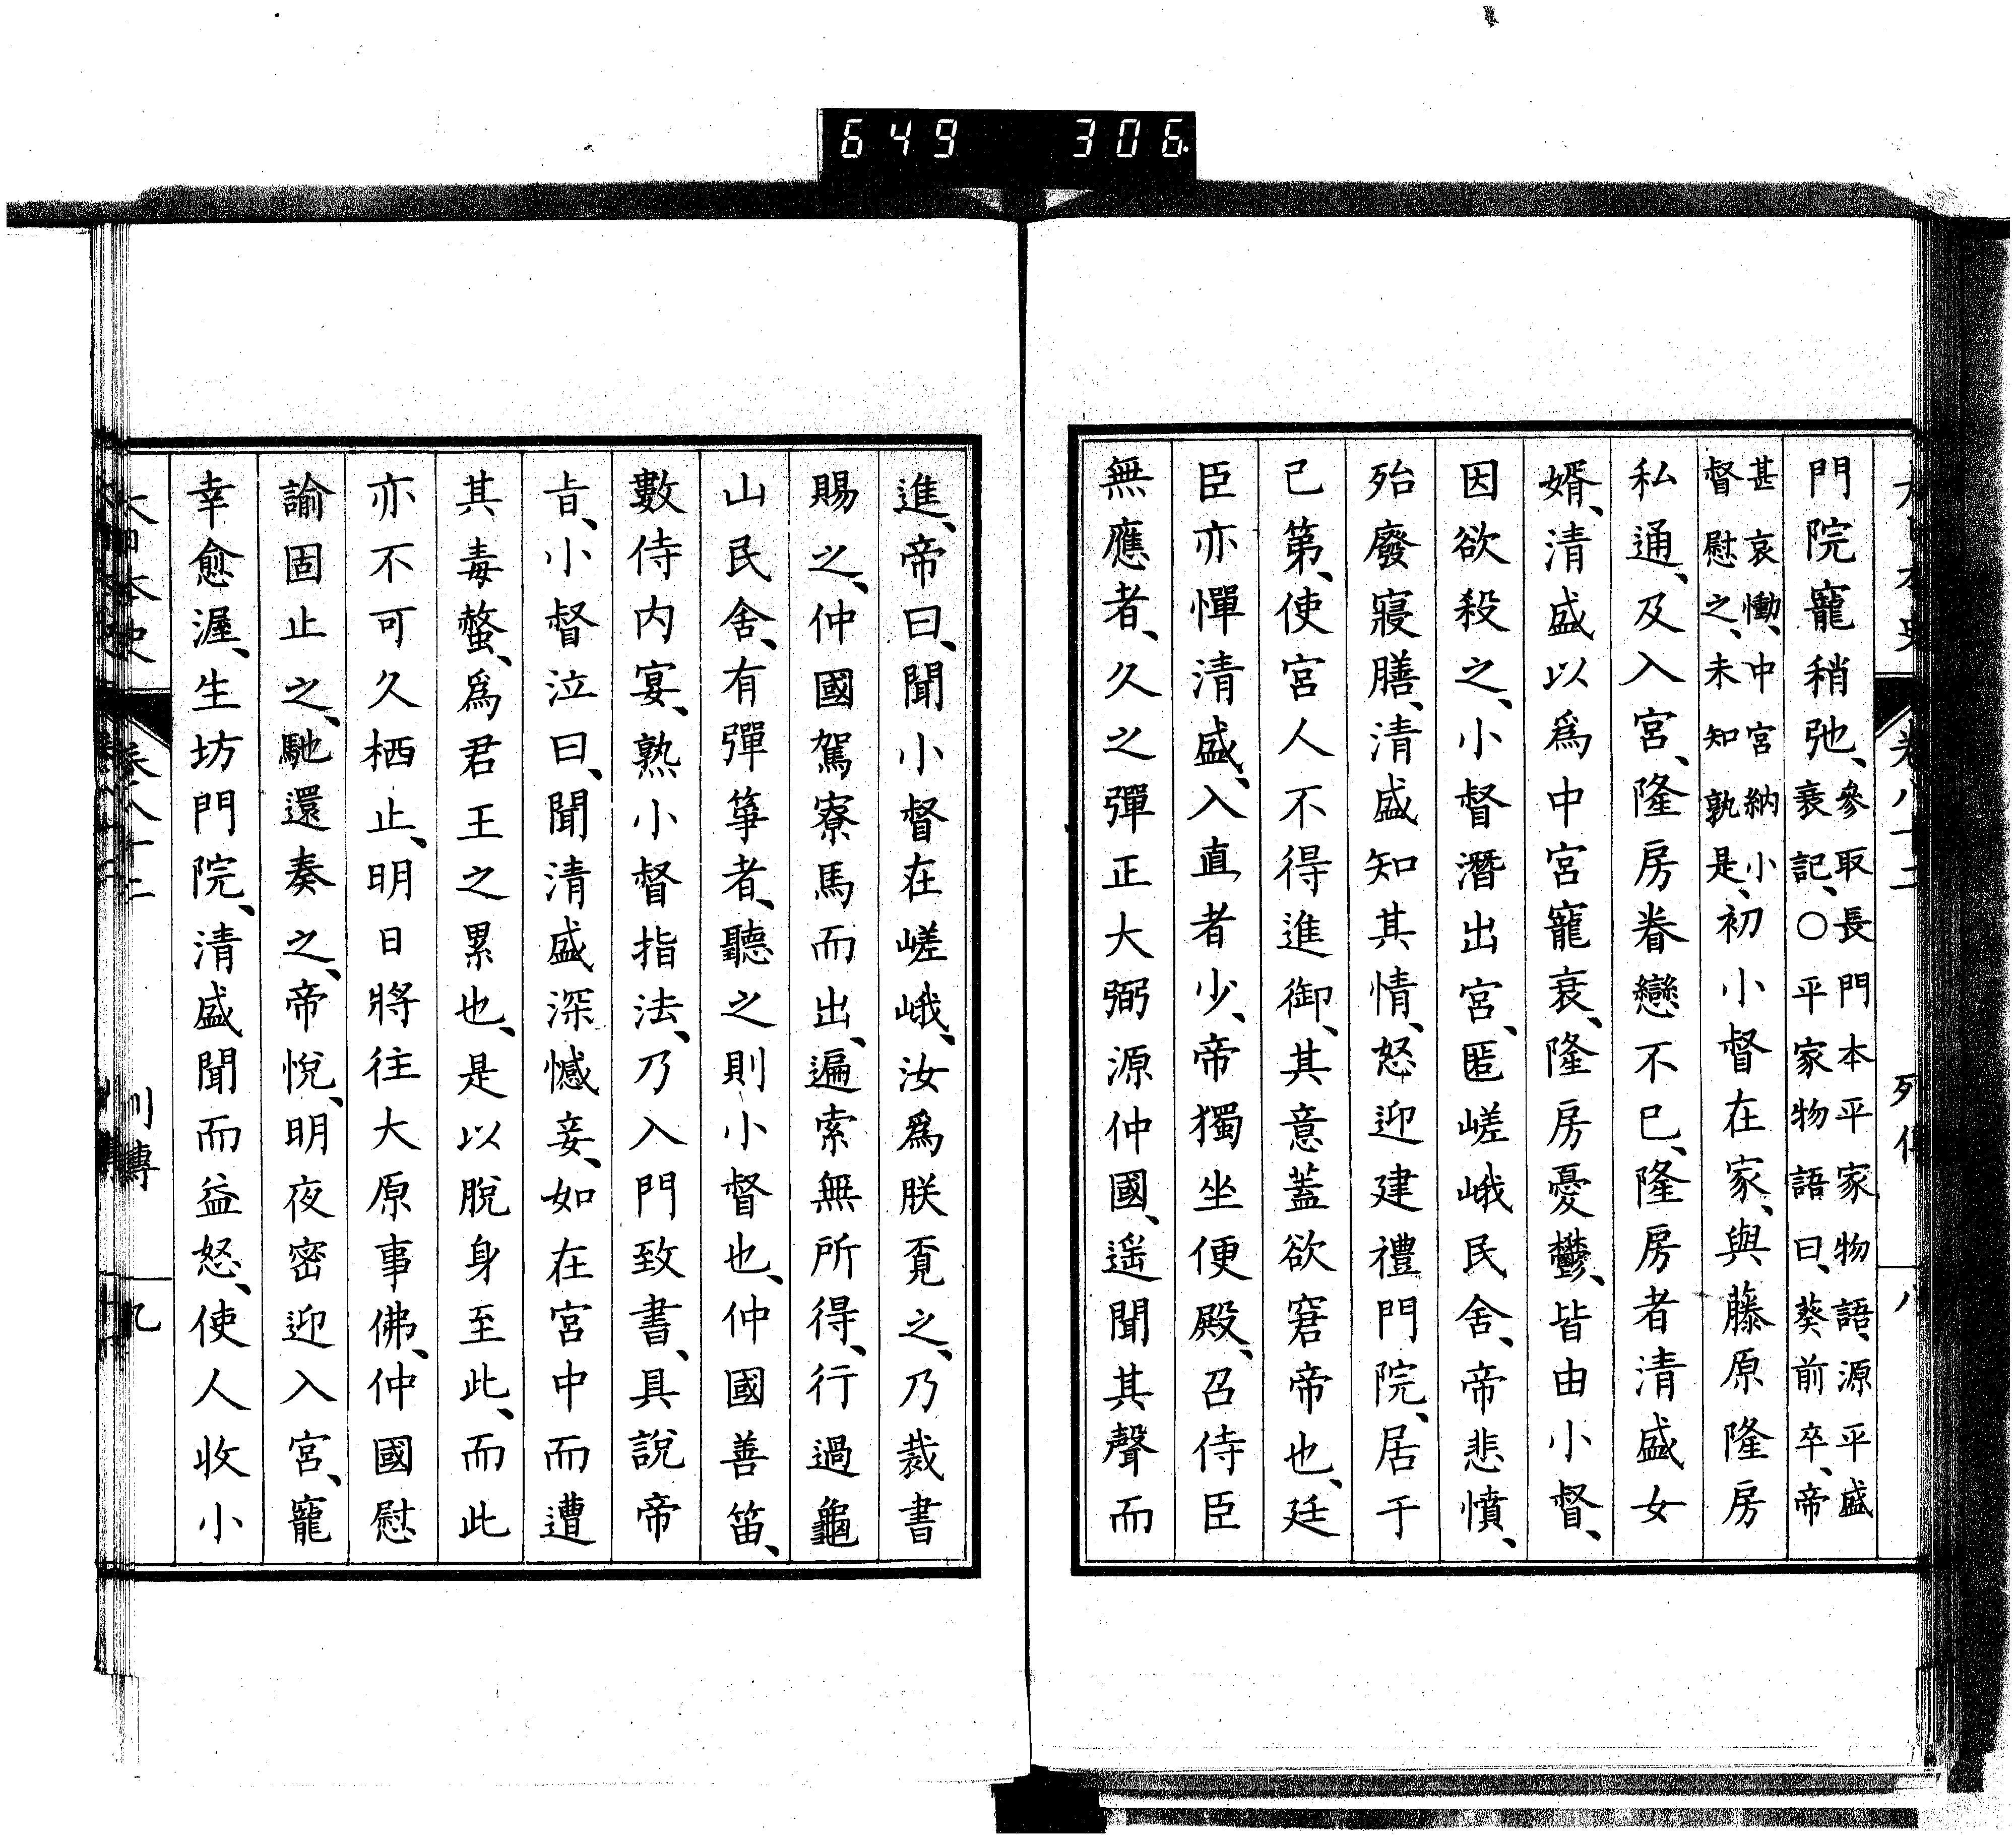 649 306
大日本史 卷八十二 列傳 八
門院寵稍弛、參取長門本平家物語、源平盛衰記、○平家物語曰、葵前卒、帝
甚哀慟、中宮納小督慰之、未知孰是、初小督在家、與藤原隆房
私通、及入宮、隆房眷戀不已、隆房者清盛女
婿、清盛以爲中宮寵衰、隆房憂鬱、皆由小督、
因欲殺之、小督潛出宮、匿嵯峨民舍、帝悲憤、
殆廢寢膳、清盛知其情、怒迎建禮門院、居于
已第、使宮人不得進御、其意蓋欲窘帝也、廷
臣亦憚清盛、入直者少、帝獨坐便殿、召侍臣
無應者、久之彈正大弼源仲國、遥聞其聲而
進、帝曰、聞小督在嵯峨、汝爲朕覔之、乃裁書
賜之、仲國駕寮馬而出、遍索無所得、行過龜
山民舍、有彈箏者、聽之則小督也、仲國善笛、
數侍内宴、熟小督指法、乃入門致書、具說帝
旨、小督泣曰、聞清盛深憾妾、如在宮中而遭
其毒螫、爲君王之累也、是以脫身至此、而此
亦不可久栖止、明日將往大原事佛、仲國慰
諭固止之、馳還奏之、帝悅、明夜密迎入宮、寵
幸愈渥、生坊門院、清盛聞而益怒、使人收小
大日本史 卷八十二 列傳 九